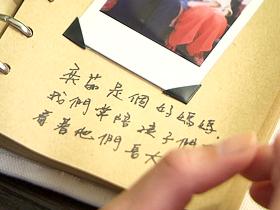 奕茹是個好媽媽.
我們常陪孩子們
看著他們長大